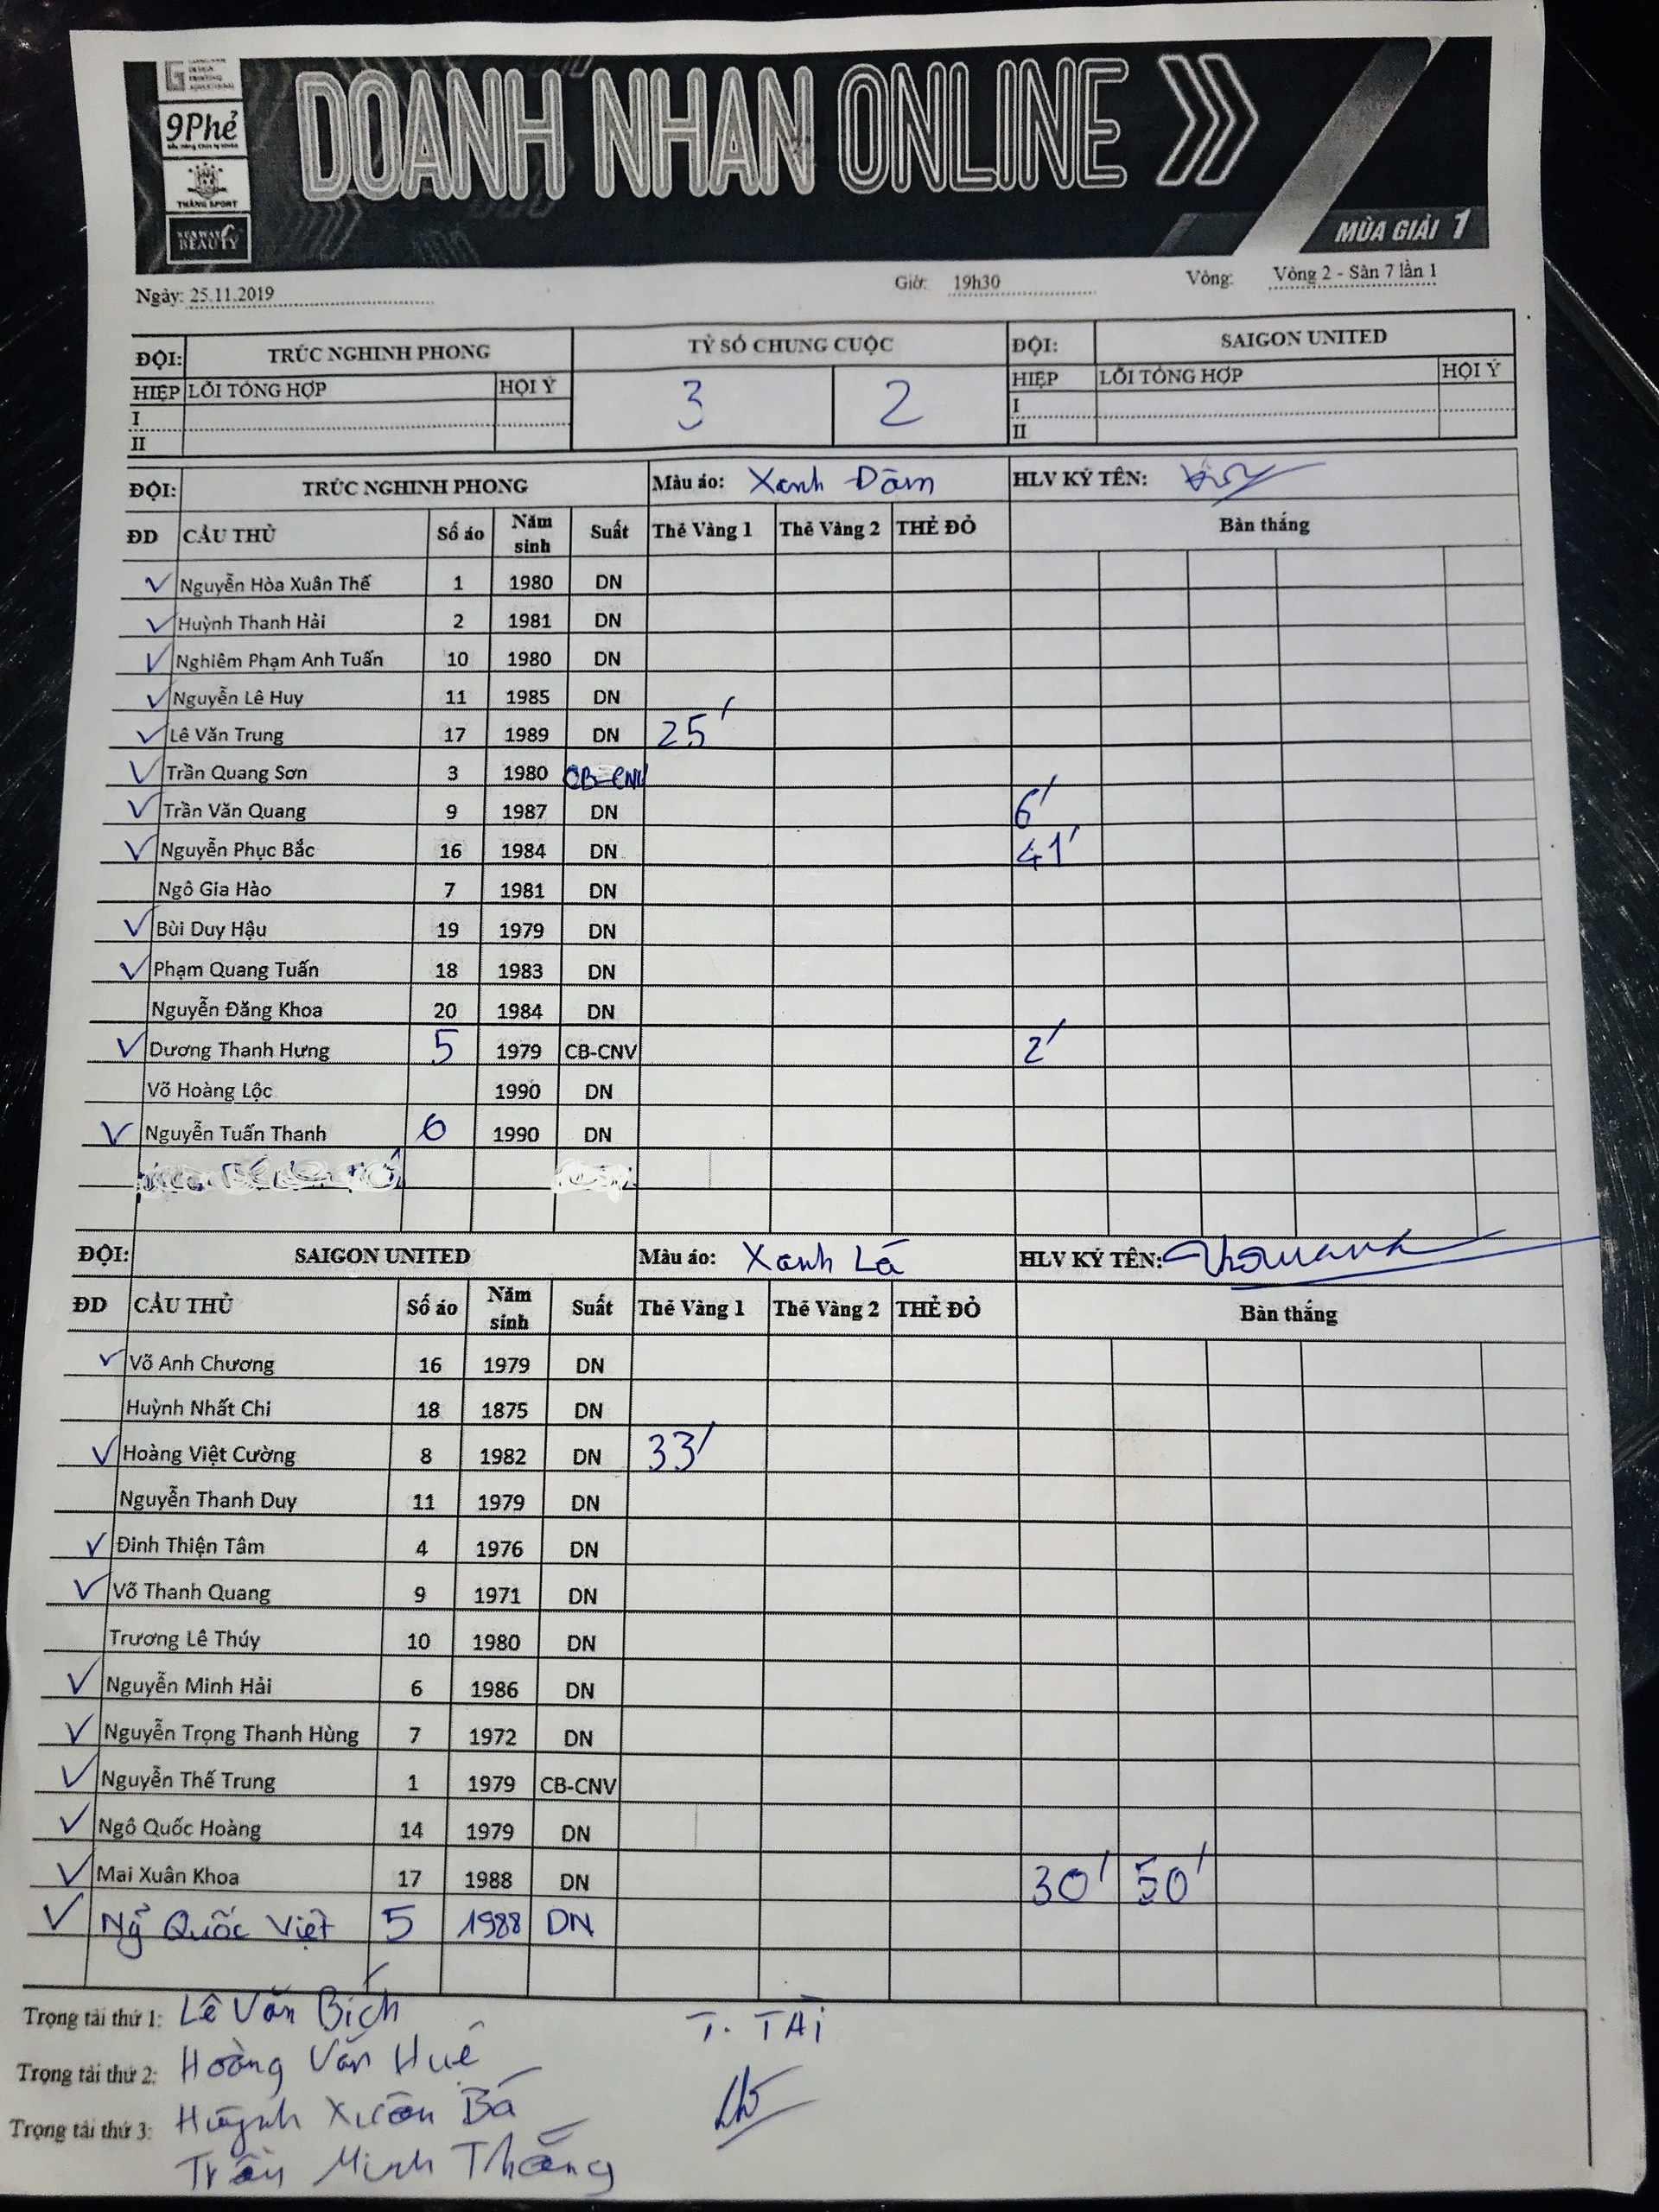 9Phẻ
THĂNG SPORT
BEAUTY
DOANH NHAN ONLINE
MÙA GIẢI 1
Ngày: 25.11.2019 Giờ: 19h30 Vòng: Vòng 2 - Sân 7 lần 1
ĐỘI: TRÚC NGHINH PHONG TỶ SỐ CHUNG CUỘC ĐỘI: SAIGON UNITED
HIỆP LỖI TỔNG HỢP HỘI Ý 3 2 HIỆP LỖI TỔNG HỢP HỘI Ý
I I
II II
ĐỘI: TRÚC NGHINH PHONG Màu áo: Xanh Dâm HLV KÝ TÊN:
ĐD CẦU THỦ Số áo Năm sinh Suất Thẻ Vàng 1 Thẻ Vàng 2 THẺ ĐỎ Bàn thắng
Nguyễn Hòa Xuân Thế 1 1980 DN
Huỳnh Thanh Hải 2 1981 DN
Nghiêm Phạm Anh Tuấn 10 1980 DN
Nguyễn Lê Huy 11 1985 DN
Lê Văn Trung 17 1989 DN 25'
Trần Quang Sơn 3 1980 CB-CNV
Trần Văn Quang 9 1987 DN 6'
Nguyễn Phục Bắc 16 1984 DN 41'
Ngô Gia Hào 7 1981 DN
Bùi Duy Hậu 19 1979 DN
Phạm Quang Tuấn 18 1983 DN
Nguyễn Đăng Khoa 20 1984 DN
Dương Thanh Hưng 5 1979 CB-CNV 2'
Võ Hoàng Lộc 1990 DN
Nguyễn Tuấn Thanh 6 1990 DN
ĐỘI: SAIGON UNITED Màu áo: Xanh Lá HLV KÝ TÊN:
ĐD CẦU THỦ Số áo Năm sinh Suất Thẻ Vàng 1 Thẻ Vàng 2 THẺ ĐỎ Bàn thắng
Võ Anh Chương 16 1979 DN
Huỳnh Nhất Chi 18 1875 DN
Hoàng Việt Cường 8 1982 DN 33'
Nguyễn Thanh Duy 11 1979 DN
Đinh Thiện Tâm 4 1976 DN
Võ Thanh Quang 9 1971 DN
Trương Lê Thúy 10 1980 DN
Nguyễn Minh Hải 6 1986 DN
Nguyễn Trọng Thanh Hùng 7 1972 DN
Nguyễn Thế Trung 1 1979 CB-CNV
Ngô Quốc Hoàng 14 1979 DN
Mai Xuân Khoa 17 1988 DN 30' 50'
Ng Quốc Việt 5 1988 DN
Trọng tài thứ 1: Lê Văn Bích T. TÀI
Trọng tài thứ 2: Hoàng Văn Huê
Trọng tài thứ 3: Huỳnh Xuân Bá
Trần Minh Thắng